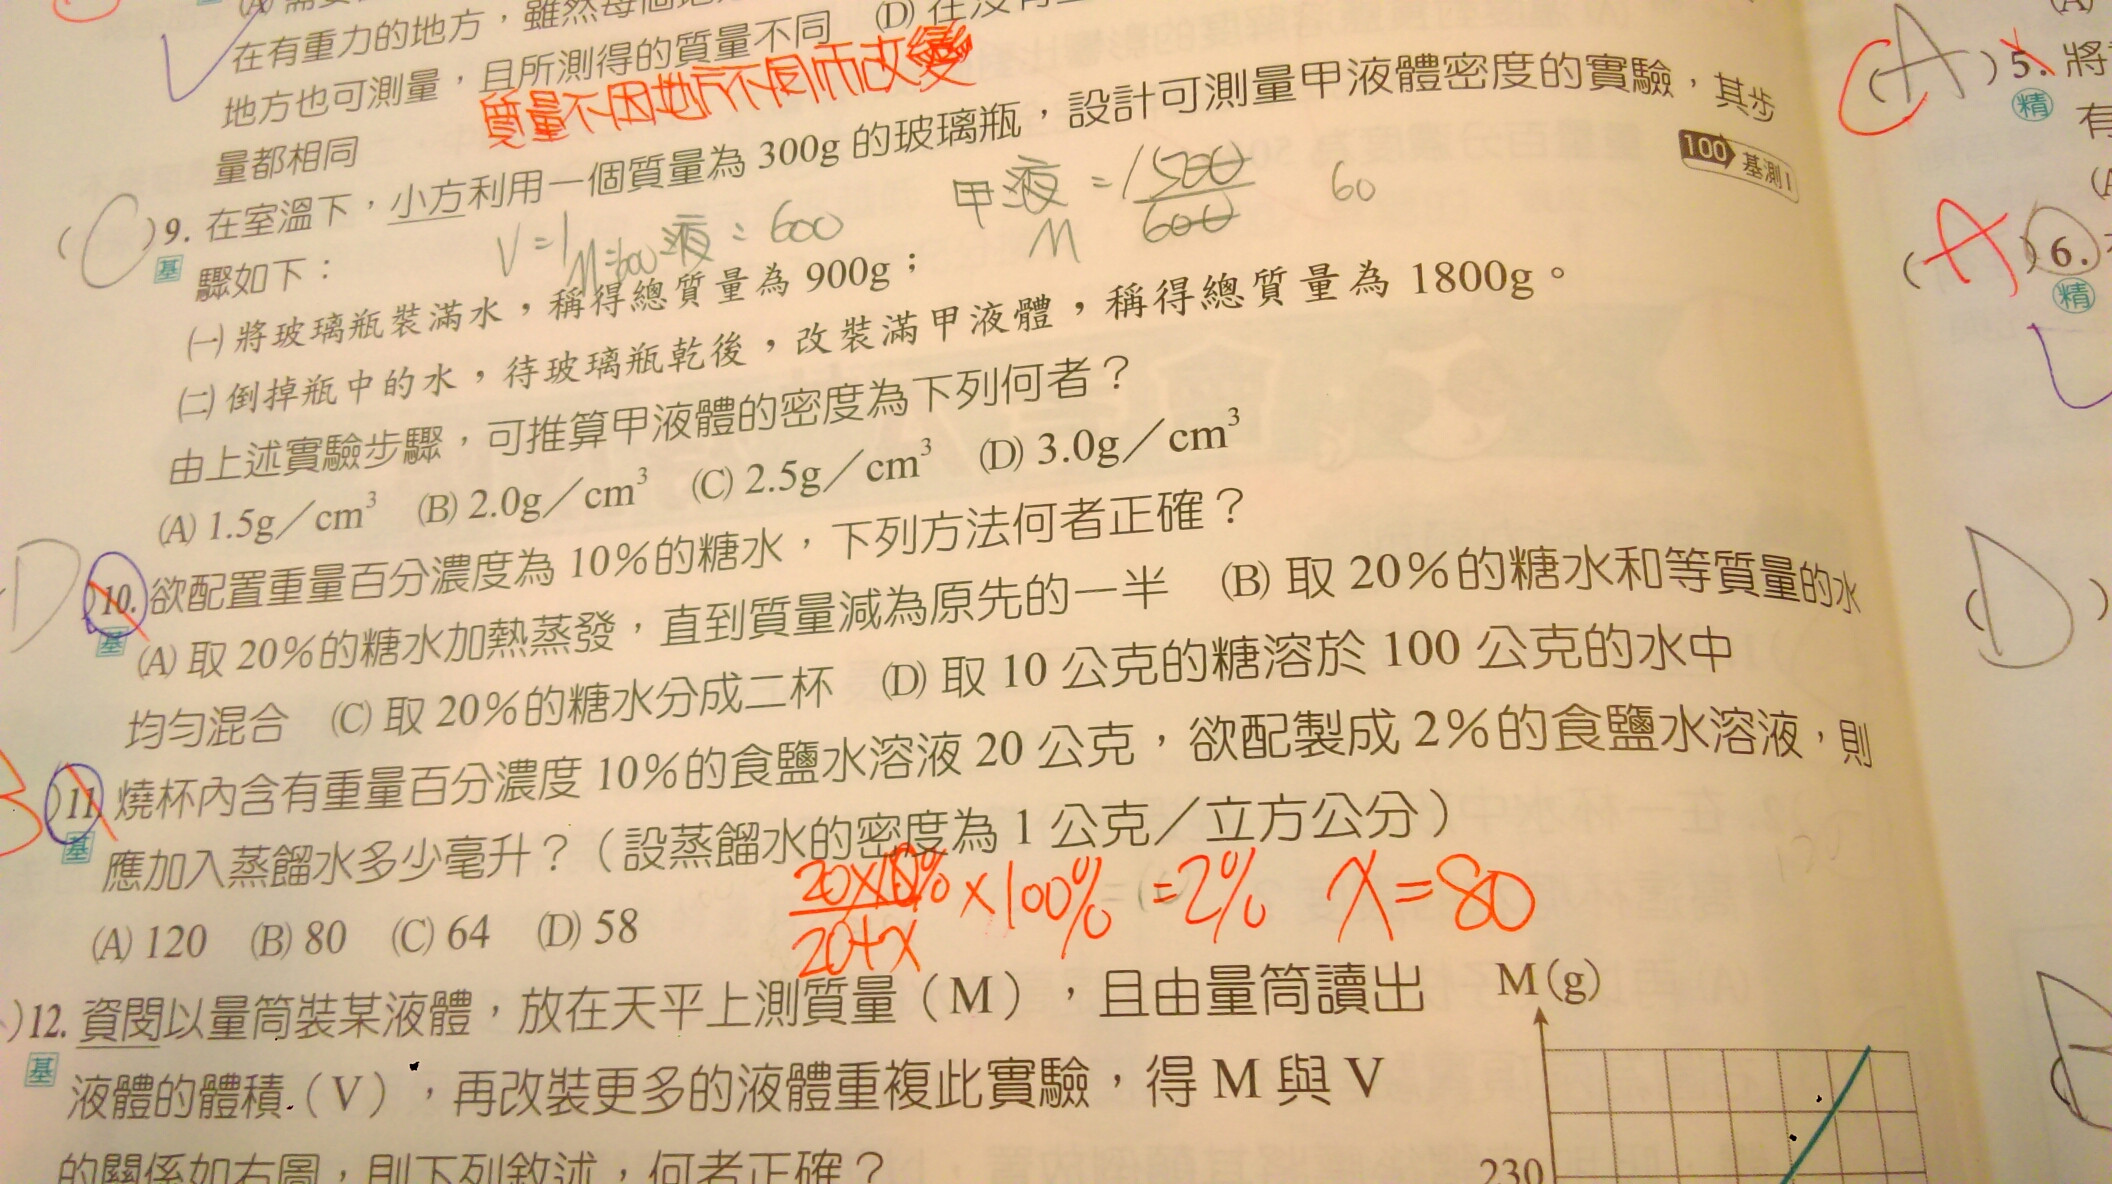 在有重力的地方，雖然每個地
(D) 在沒有
地方也可測量，且所測得的質量不同
量都相同
質量不因地方不同而改變
(C) 9. 在室溫下，小方利用一個質量為 300g 的玻璃瓶，設計可測量甲液體密度的實驗，其步
基 驟如下：
100 基測I
V=1
M=600
液=600
甲液 = 1500
M 600
60
㈠將玻璃瓶裝滿水，稱得總質量為 900g；
㈡倒掉瓶中的水，待玻璃瓶乾後，改裝滿甲液體，稱得總質量為 1800g。
由上述實驗步驟，可推算甲液體的密度為下列何者？
(A) 1.5g／cm³ (B) 2.0g／cm³ (C) 2.5g／cm³ (D) 3.0g／cm³
D )10. 欲配置重量百分濃度為 10％的糖水，下列方法何者正確？
基 (A) 取 20％的糖水加熱蒸發，直到質量減為原先的一半 (B) 取 20％的糖水和等質量的水
均勻混合 (C) 取 20％的糖水分成二杯 (D) 取 10 公克的糖溶於 100 公克的水中
B )11. 燒杯內含有重量百分濃度 10％的食鹽水溶液 20 公克，欲配製成 2％的食鹽水溶液，則
基 應加入蒸餾水多少毫升？（設蒸餾水的密度為 1 公克／立方公分）
(A) 120 (B) 80 (C) 64 (D) 58
20×10% ×100% =2% x=80
20+x
)12. 資閔以量筒裝某液體，放在天平上測質量（M），且由量筒讀出
基 液體的體積（V），再改裝更多的液體重複此實驗，得 M 與 V
的關係如右圖，則下列敘述，何者正確？
M(g)
230
(A) 5. 將
精 有
(A) 6.
精
(D)